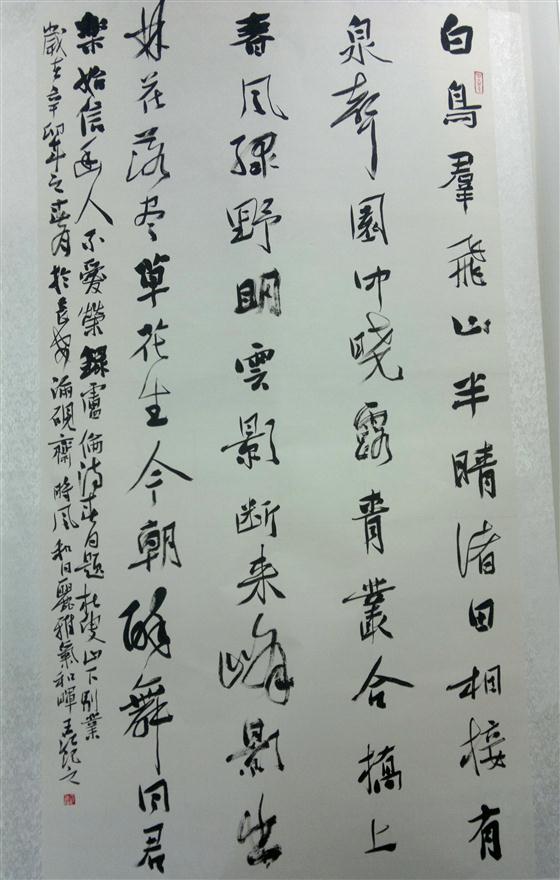 白鳥羣飛山半晴渚田相接有
泉聲園中曉露青叢合橋上
春風綠野明雲影断来峰影出
林花落尽草花生今朝醉舞同君
樂始信幽人不愛榮錄盧倫詩春日題杜叟山下别業
歲在辛卯年之春月於長硯齋時風和日麗雅氣和暉王記之